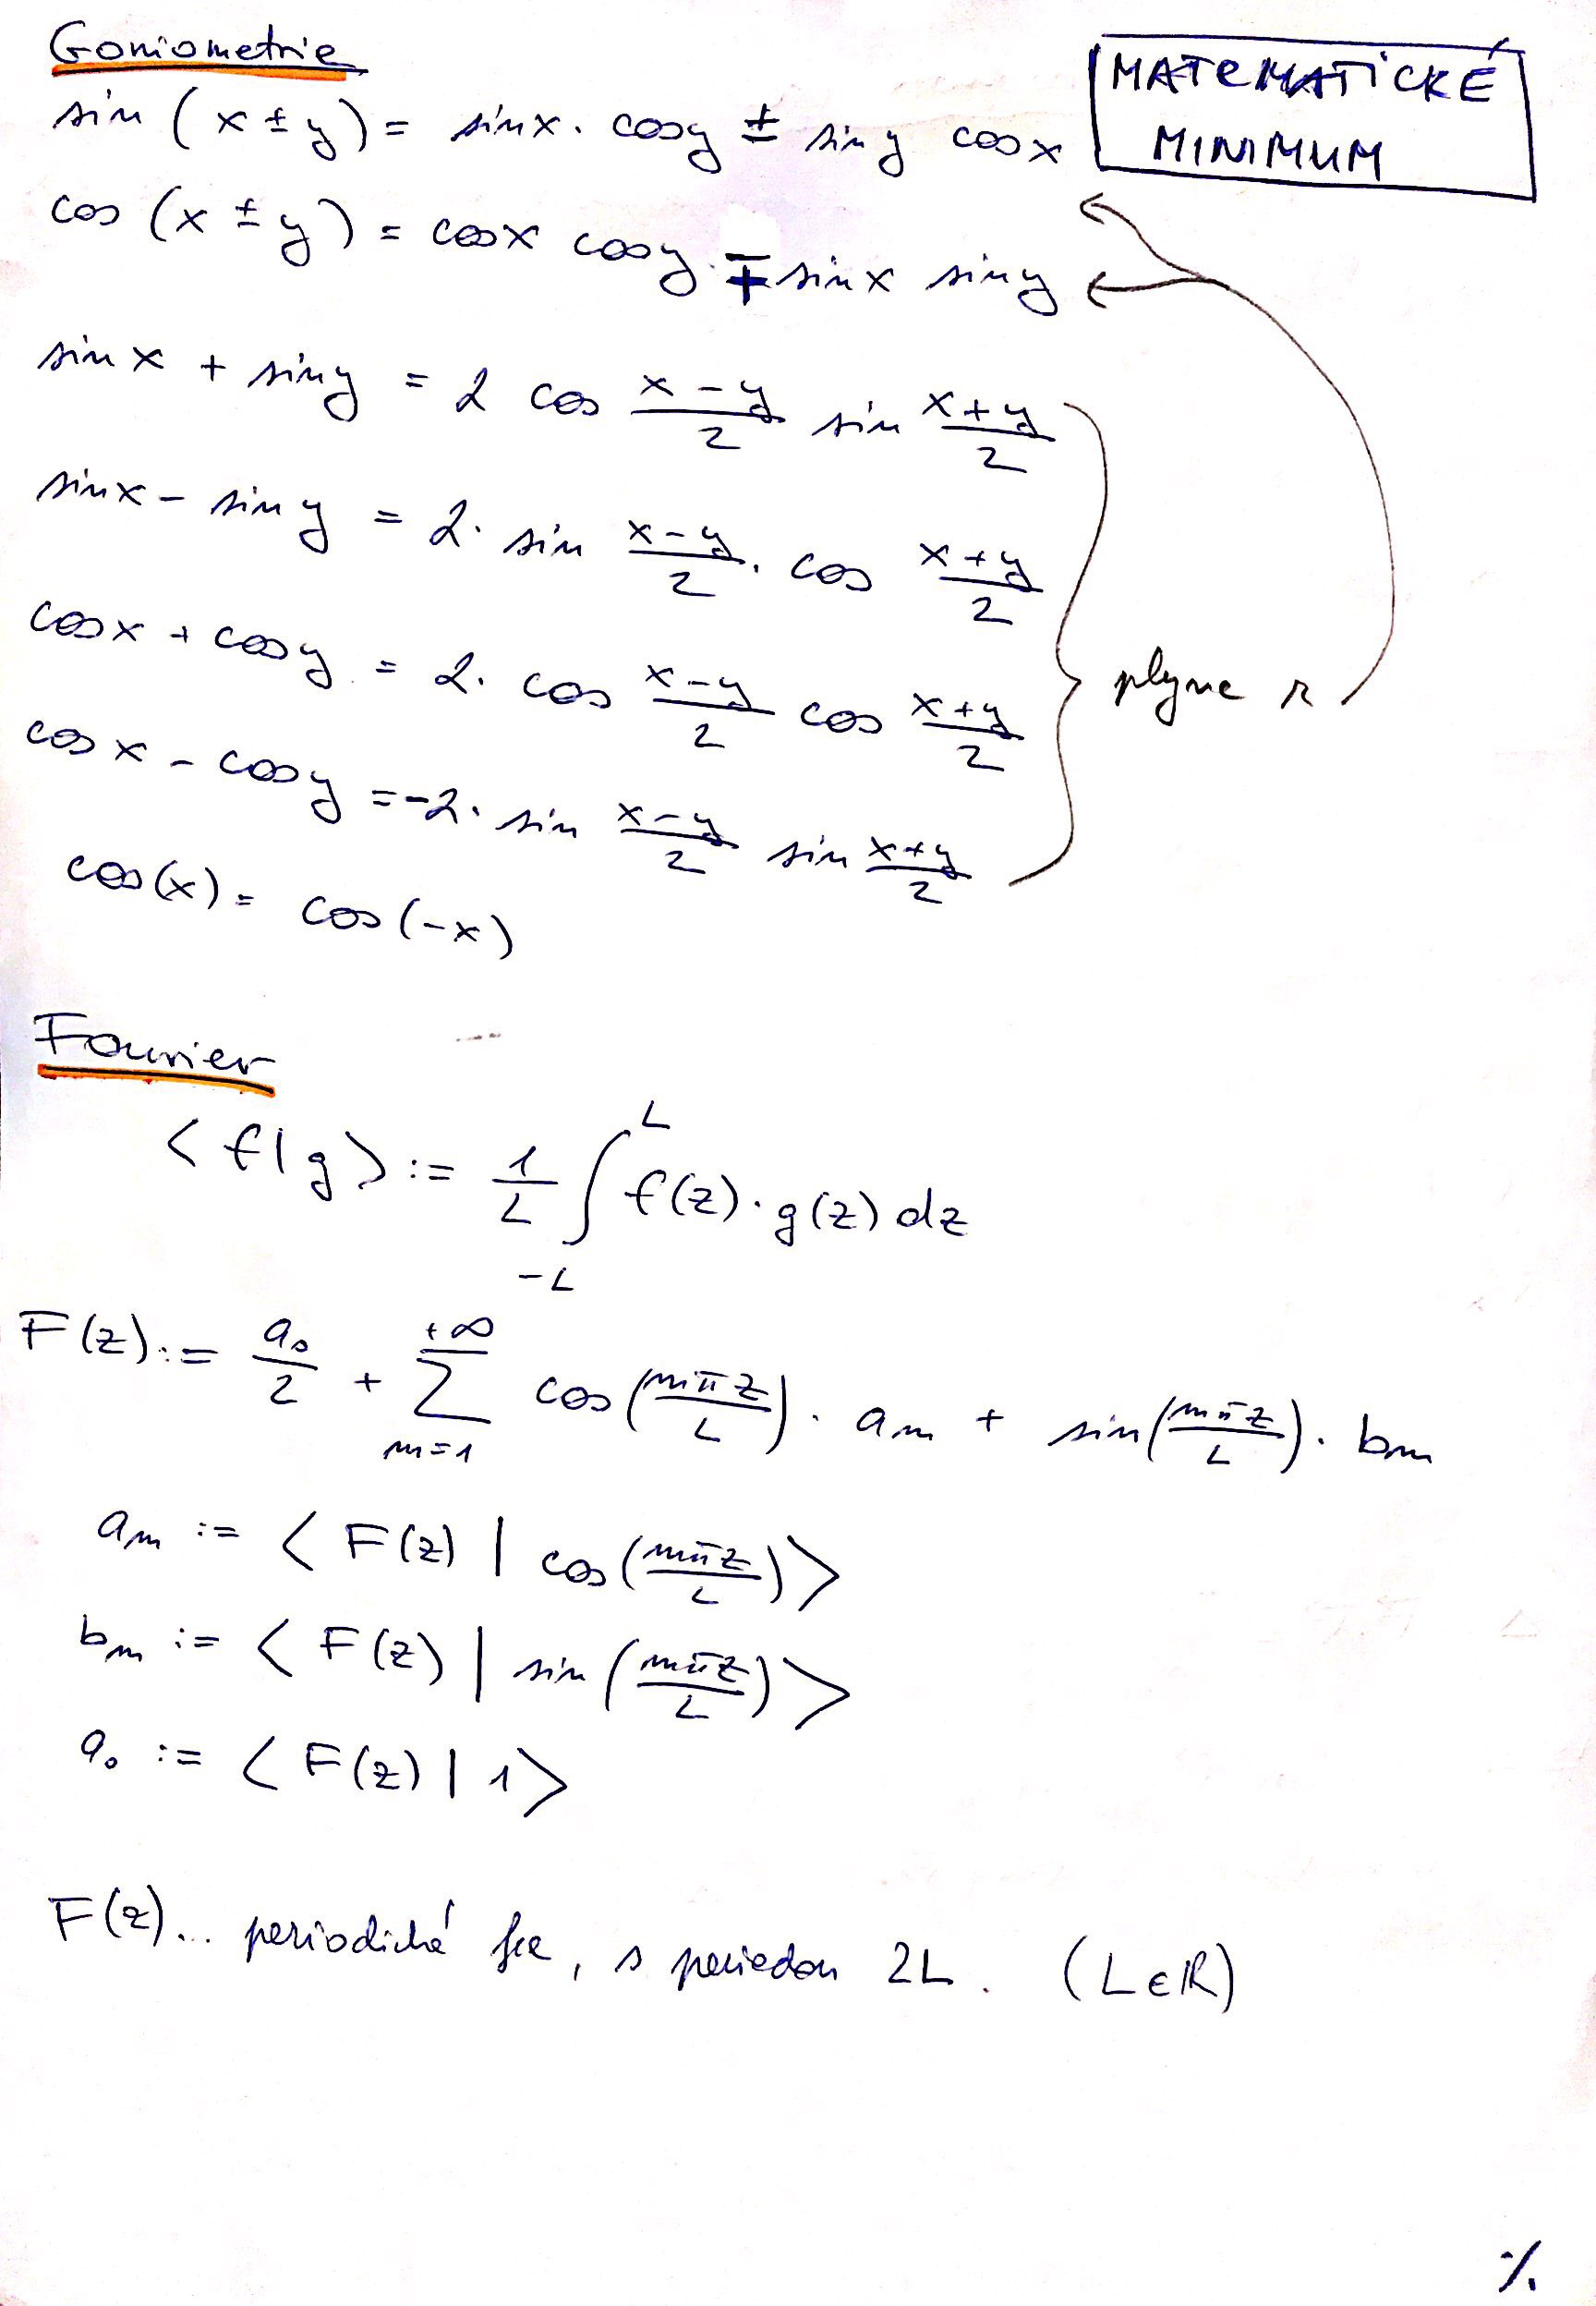 Goniometrie
MATEMATICKÉ
MINIMUM
sin (x ± y) = sin x · cos y ± sin y cos x
cos (x ± y) = cos x cos y ∓ sin x sin y
sin x + sin y = 2 cos (x-y)/2 sin (x+y)/2
sin x - sin y = 2 · sin (x-y)/2 · cos (x+y)/2
cos x + cos y = 2 · cos (x-y)/2 cos (x+y)/2
plyne z
cos x - cos y = -2 · sin (x-y)/2 sin (x+y)/2
cos(x) = cos(-x)
Fourier
<f|g> := 1/L ∫_{-L}^{L} f(z) · g(z) dz
F(z) := a₀/2 + Σ_{m=1}^{+∞} cos(mπz/L) · aₘ + sin(mπz/L) · bₘ
aₘ := <F(z) | cos(mπz/L)>
bₘ := <F(z) | sin(mπz/L)>
a₀ := <F(z) | 1>
F(z)... periodická fce, s periodou 2L. (L∈ℝ)
·/.